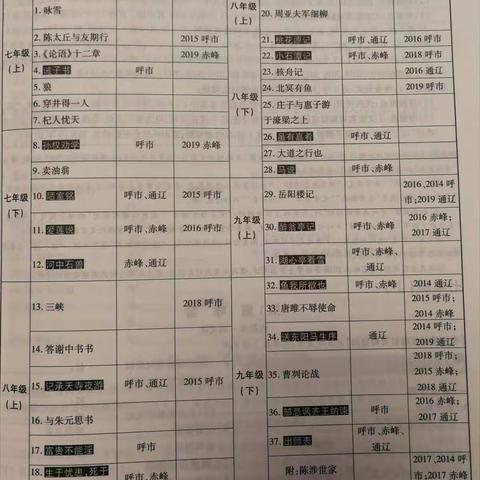 1. 咏雪
七年级(上)
2. 陈太丘与友期行 2015 呼市
3.《论语》十二章 2019 赤峰
4. 诫子书 呼市
5. 狼
6. 穿井得一人
7. 杞人忧天
七年级(下)
8. 孙权劝学 呼市 2019 赤峰
9. 卖油翁
10. 陋室铭 呼市、通辽 2015 呼市
11. 爱莲说 呼市、赤峰 2016 呼市
12. 河中石兽 赤峰、通辽
八年级(上)
13. 三峡 2018 呼市
14. 答谢中书书
15. 记承天寺夜游 呼市、通辽 2015 呼市
16. 与朱元思书
17. 富贵不能淫 呼市
18. 生于忧患,死于 呼市、赤峰、
八年级(上)
20. 周亚夫军细柳
八年级(下)
21. 桃花源记 呼市、通辽 2016 呼市
22. 小石潭记 呼市、赤峰 2018 呼市
23. 核舟记 2016 通辽
24. 北冥有鱼 2019 呼市
25. 庄子与惠子游
于濠梁之上
26. 虽有嘉肴 呼市、通辽
27. 大道之行也
28. 马说 呼市、赤峰
九年级(上)
29. 岳阳楼记 2016、2014 呼
市;2019 通辽
30. 醉翁亭记 呼市、赤峰 2016 赤峰;
2017 通辽
31. 湖心亭看雪 呼市、赤峰、
通辽
九年级(下)
32. 鱼我所欲也 呼市、赤峰 2014 通辽
33. 唐雎不辱使命 2015 呼市;
2014 赤峰
34. 送东阳马生序 通辽 2014 呼市;
2019 通辽
35. 曹刿论战 2018 呼市;
2015 赤峰;
2018 通辽
36. 邹忌讽齐王纳谏 呼市 2016 赤峰;
2017 通辽
37. 出师表 呼市、赤峰、
通辽
附:陈涉世家 2017、2014 呼
市;2017 赤峰